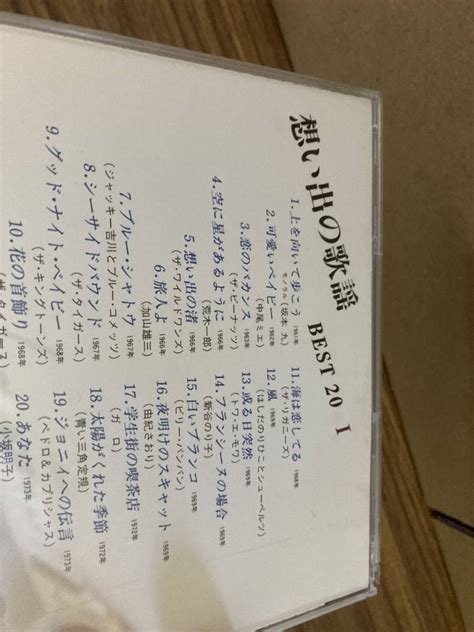 想い出の歌謡
BEST 20 I
1. 上を向いて歩こう 1961年
モノラル (坂本 九)
2. 可愛いベイビー 1962年
(中尾ミエ)
3. 恋のバカンス 1963年
(ザ・ピーナッツ)
4. 空に星があるように 1966年
(荒木一郎)
5. 想い出の渚 1966年
(ザ・ワイルドワンズ)
6. 旅人よ 1966年
(加山雄三)
7. ブルー・シャトウ 1967年
(ジャッキー吉川とブルー・コメッツ)
8. シーサイドバウンド 1967年
(ザ・タイガース)
9. グッド・ナイト・ベイビー 1968年
(ザ・キングトーンズ)
10. 花の首飾り 1968年
(ザ・タイガース)
11. 海は恋してる 1968年
(ザ・リガニーズ)
12. 風 1969年
(はしだのりひことシューベルツ)
13. 或る日突然 1969年
(トワ・エ・モワ)
14. フランシーヌの場合 1969年
(新谷のり子)
15. 白いブランコ 1969年
(ビリー・バンバン)
16. 夜明けのスキャット 1969年
(由紀さおり)
17. 学生街の喫茶店 1972年
(ガロ)
18. 太陽がくれた季節 1972年
(青い三角定規)
19. ジョニイへの伝言 1973年
(ペドロ&カプリシャス)
20. あなた 1973年
(小坂明子)